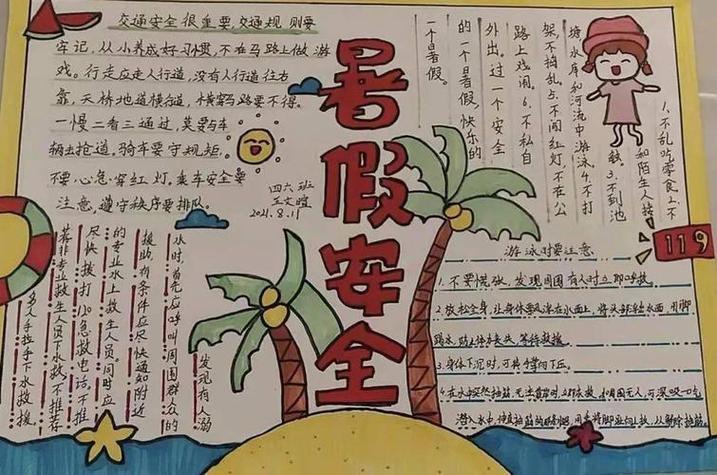 交通安全很重要,交通规则要
牢记,从小养成好习惯,不在马路上做游
戏。行走应走人行道,没有人行道往右
靠,天桥地道横行道,横穿马路要不得。
一慢二看三通过,莫要与车
辆去抢道,骑车要守规矩,
不要心急穿红灯,乘车安全要
注意,遵守秩序要排队。
四六班
2021.8.11
暑假安全
1.不乱吃零食2.不
和陌生人接
触。3.不到池
塘水库和河流中游泳4.不打
架,不捣乱5.不闯红灯不在公
路上戏闹。6.不私自
外出过一个安全
的一个暑假,快乐的
一个暑假。
119
发现有人溺
水时,首先应呼叫周围群众的
援助,有条件应尽快通知附近
的专业水上救生人员。同时应
尽快拨打120急救电话,不推
荐非专业救生人员下水救,不推荐
多人手拉手下水救援
游泳时要注意
1.不要慌张,发现周围有人时立即呼救。
2.放松全身,让身体飘浮在水面上,将头部浮出水面,用脚
踢水,防止体力丧失,等待救援。
3.身体下沉时,可将手掌向下压。
4.在水中突然抽筋,无法靠岸时,立即求救,如周围无人,可深吸一气
潜入水中,伸直抽筋的那条腿,用手将脚应向上扳,以解除抽筋。